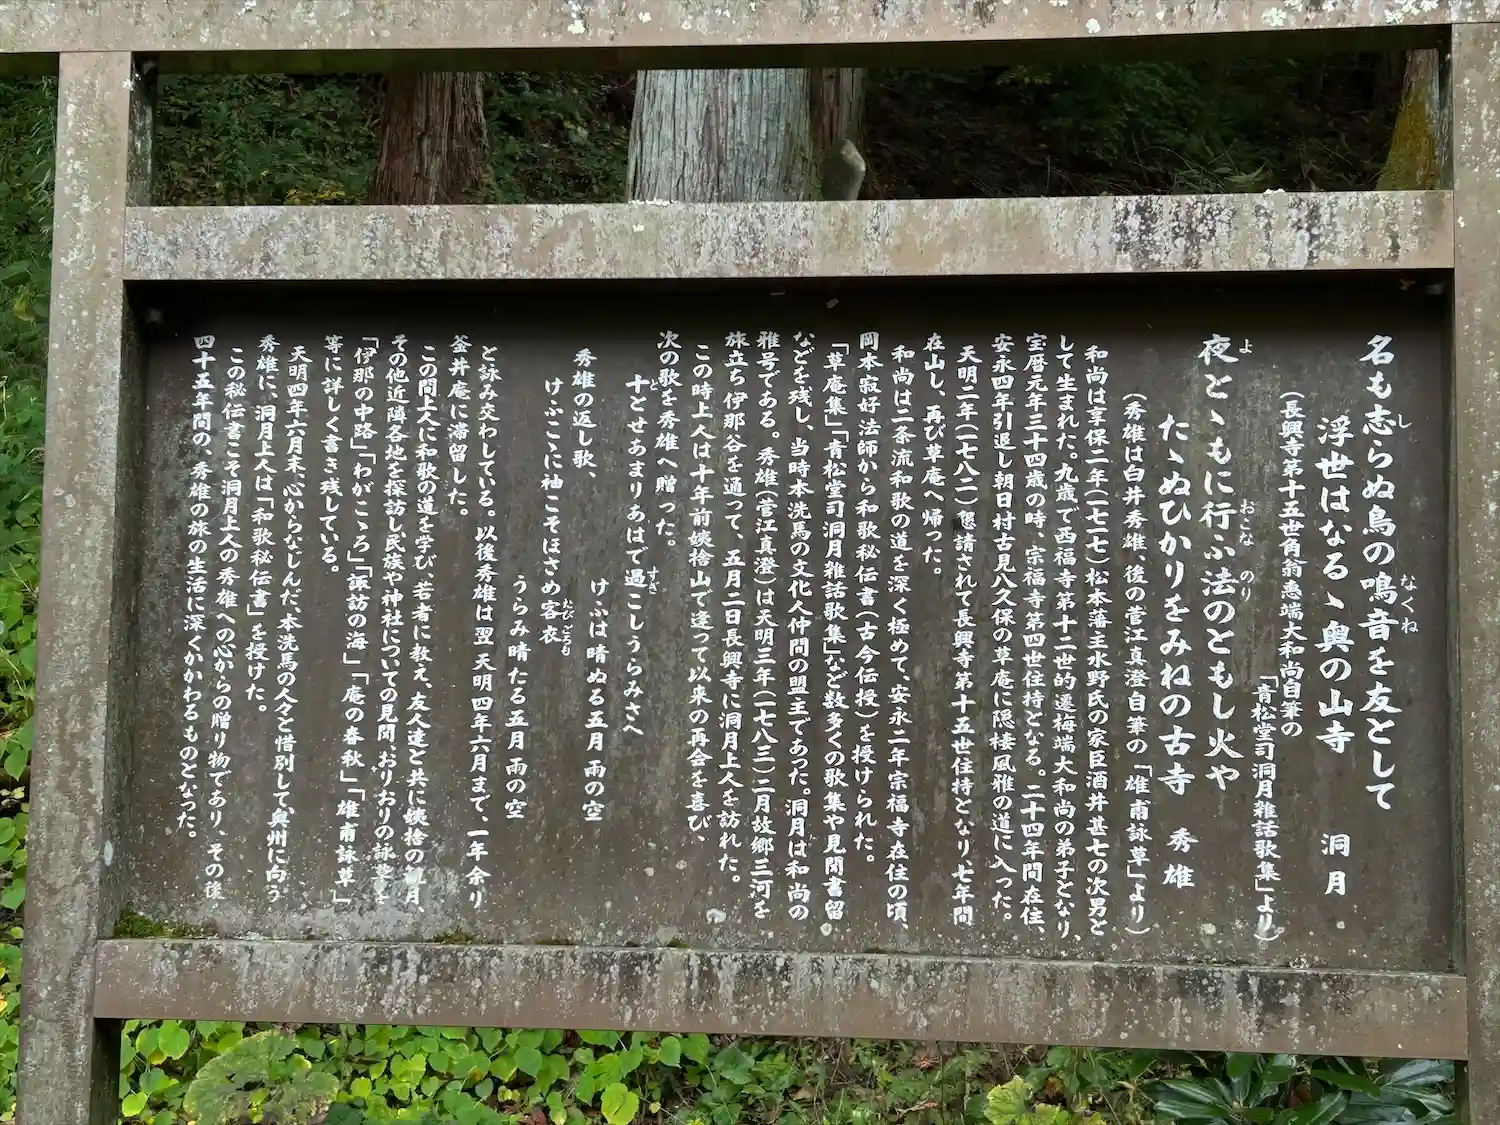 名も志らぬ鳥の鳴音を友として
しなくね
浮世はなるゝ奥の山寺 洞月
（長興寺第十五世角翁恵端大和尚自筆の
「青松堂司洞月雑話歌集」より）
夜とゝもに行ふ法のともし火や
よおこなのり
たゝぬひかりをみねの古寺 秀雄
（秀雄は白井秀雄、後の菅江真澄自筆の「雄甫詠草」より）
和尚は享保二年（一七一七）松本藩主水野氏の家臣酒井甚七の次男と
して生まれた。九歳で西福寺第十二世的遷梅端大和尚の弟子となり、
宝暦元年三十四歳の時、宗福寺第四世住持となる。二十四年間在住、
安永四年引退し朝日村古見八久保の草庵に隠棲風雅の道に入った。
天明二年（一七八二）懇請されて長興寺第十五世住持となり、七年間
在山し、再び草庵へ帰った。
和尚は二条流和歌の道を深く極めて、安永二年宗福寺在住の頃、
岡本寂好法師から和歌秘伝書（古今伝授）を授けられた。
「草庵集」「青松堂司洞月雑話歌集」など数多くの歌集や見聞書留
などを残し、当時本洗馬の文化人仲間の盟主であった。洞月は和尚の
雅号である。秀雄（菅江真澄）は天明三年（一七八三）二月故郷三河を
旅立ち伊那谷を通って、五月二日長興寺に洞月上人を訪れた。
この時上人は十年前姨捨山で逢って以来の再会を喜び
次の歌を秀雄へ贈った。
十とせあまりあはで過こしうらみさへ
とすぎ
けふは晴ぬる五月雨の空
秀雄の返し歌、
けふこゝに袖こそほさめ客衣
たびごろも
うらみ晴たる五月雨の空
と詠み交わしている。以後秀雄は翌天明四年六月まで、一年余り
釜井庵に滞留した。
この間上人に和歌の道を学び、若者に教え、友人達と共に姨捨の観月、
その他近隣各地を探訪し民族や神社についての見聞、おりおりの詠草を
「伊那の中路」「わがこゝろ」「諏訪の海」「庵の春秋」「雄甫詠草」
等に詳しく書き残している。
天明四年六月末、心からなじんだ、本洗馬の人々と惜別して、奥州に向う
秀雄に、洞月上人は「和歌秘伝書」を授けた。
この秘伝書こそ洞月上人の秀雄への心からの贈り物であり、その後
四十五年間の、秀雄の旅の生活に深くかかわるものとなった。